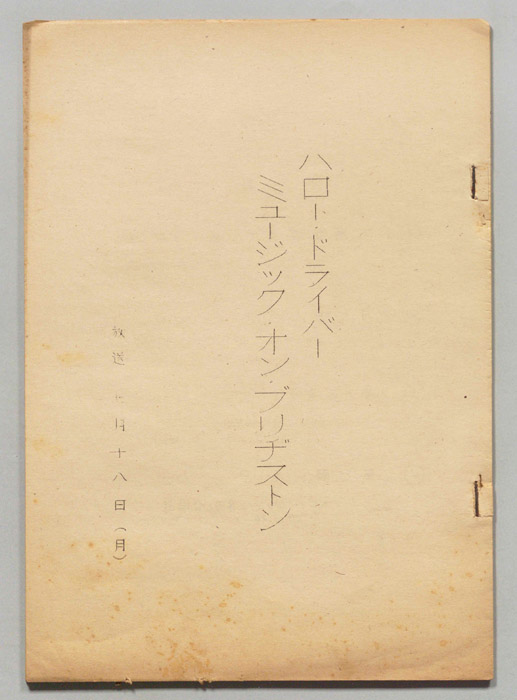 ハロー・ドライバー
ミュージック・オン・ブリヂストン
放送 月十八日(月)